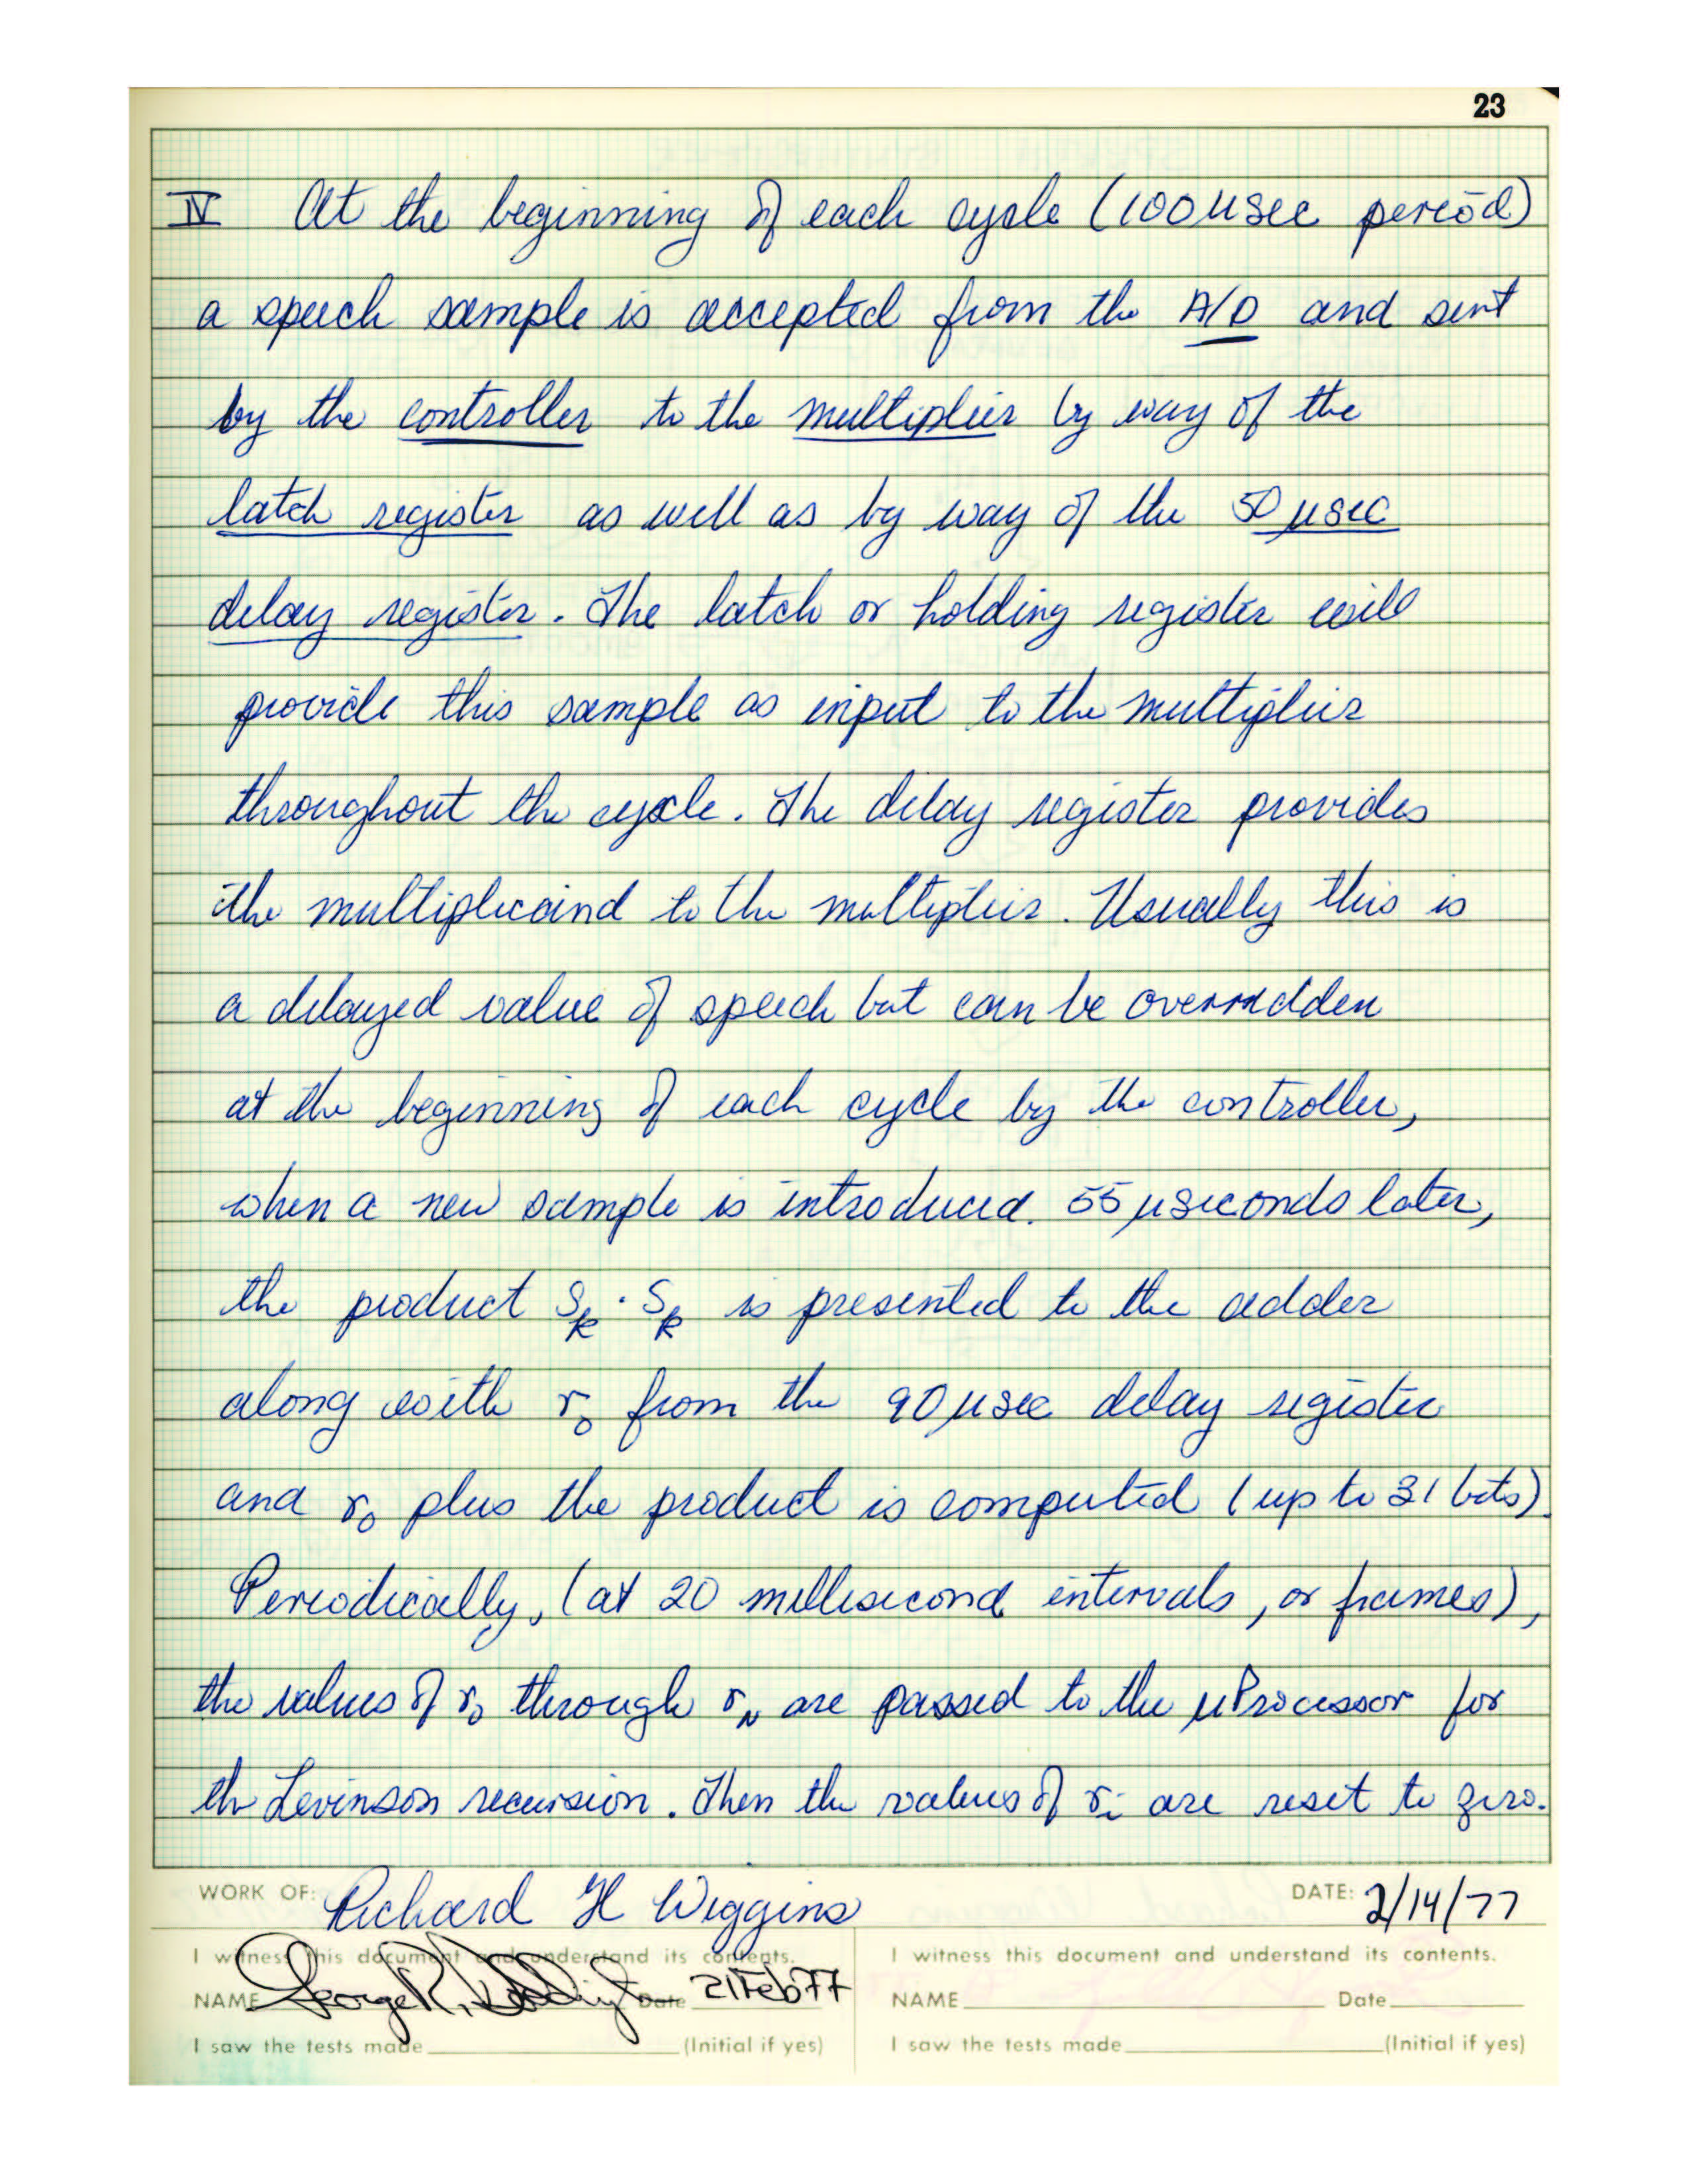 23
IV At the beginning of each cycle (100 µsec period)
a speech sample is accepted from the A/D and sent
by the controller to the multiplier by way of the
latch register as well as by way of the 50 µsec
delay register. The latch or holding register will
provide this sample as input to the multiplier
throughout the cycle. The delay register provides
the multiplicand to the multiplier. Usually this is
a delayed value of speech but can be overridden
at the beginning of each cycle by the controller,
when a new sample is introduced. 55 µseconds later,
the product Sk · Sk is presented to the adder
along with r0 from the 90 µsec delay register
and r0 plus the product is computed (up to 31 bits).
Periodically, (at 20 millisecond intervals, or frames),
the values of r0 through rN are passed to the µProcessor for
th Levinson recursion. Then the values of ri are reset to zero.
WORK OF: Richard H Wiggins DATE: 2/14/77
I witness this document and understand its contents. I witness this document and understand its contents.
NAME George R. Date 21 Feb 77 NAME Date
I saw the tests made (Initial if yes) I saw the tests made (Initial if yes)